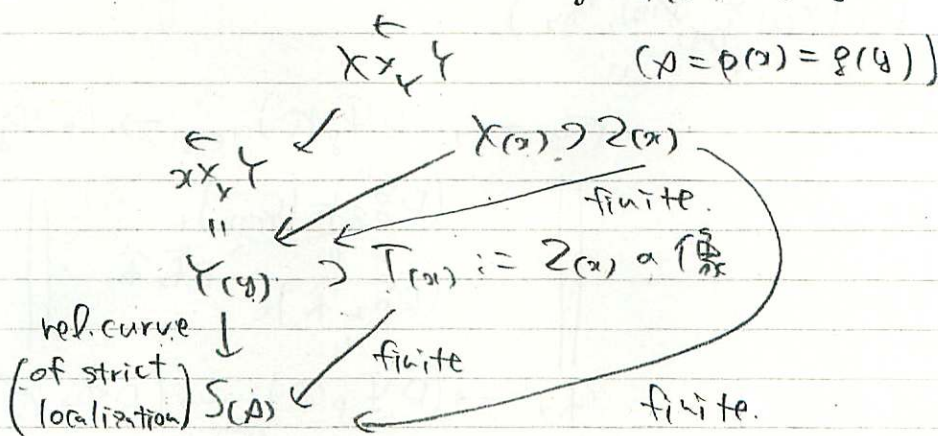 X ×_Y Y
(s = p(x) = g(y))
x ×_Y Y
X(x) ⊃ Z(x)
finite.
Y(y) ⊃ T(x) := Z(x) の像
rel. curve
(of strict localization)
finite
S(s)
finite.